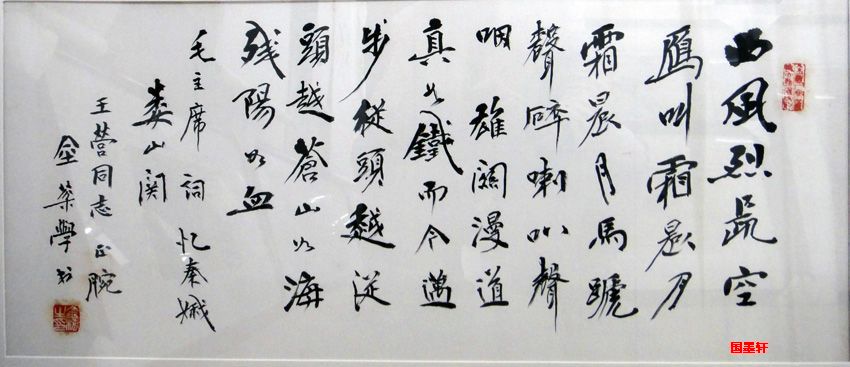 西风烈长空
雁叫霜晨月
霜晨月馬蹄
聲碎喇叭聲
咽 雄関漫道
真如鐵而今邁
步從頭越從
頭越蒼山如海
残陽如血
毛主席詞忆秦娥
娄山関
王营同志正腕
金葉學书
国墨轩